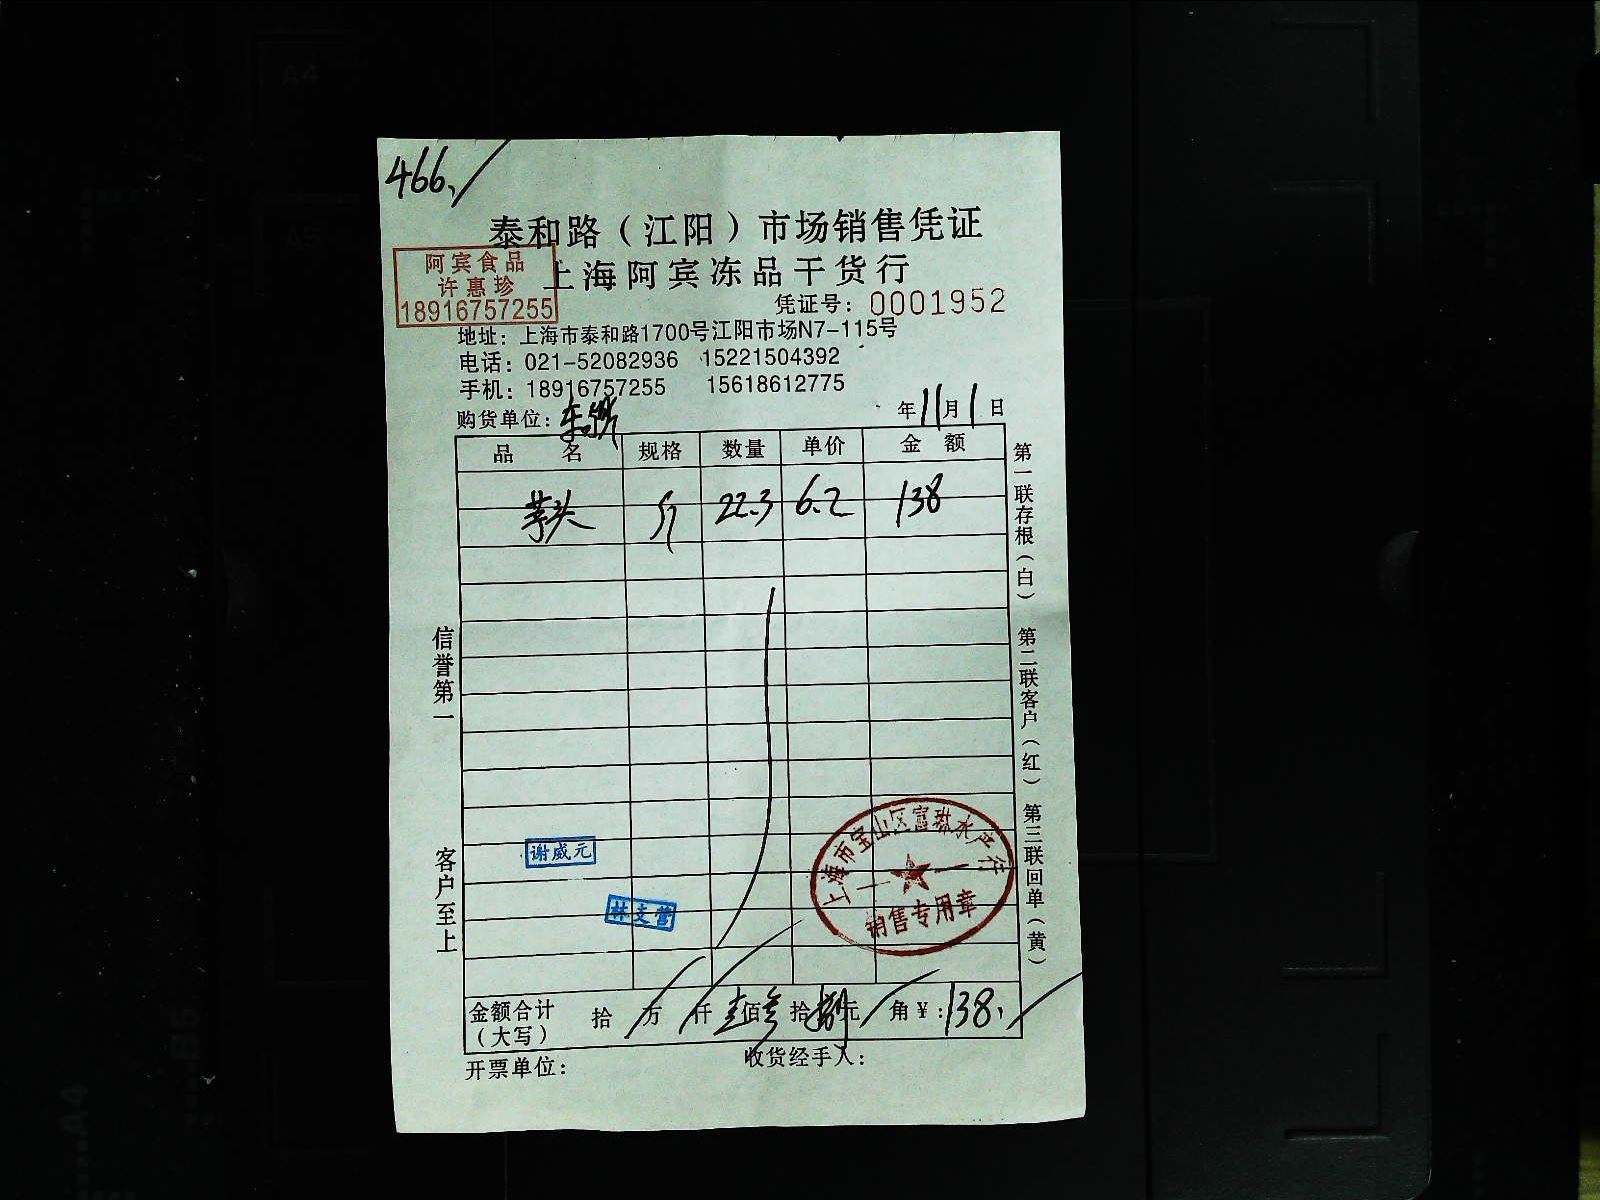 466.
泰和路（江阳）市场销售凭证
阿宾食品
许惠珍
18916757255
上海阿宾冻品干货行
凭证号：0001952
地址：上海市泰和路1700号江阳市场N7-115号
电话：021-52082936 15221504392
手机：18916757255 15618612775
购货单位： 年11月1日
品名 规格 数量 单价 金额
芋头 斤 22.3 6.2 138
第一联存根（白） 第二联客户（红） 第三联回单（黄）
信誉第一
客户至上
谢威元
林支营
上海市宝山区富琳水产行
销售专用章
金额合计（大写） 拾 万 仟 壹佰叁拾捌元 角¥：138.
开票单位： 收货经手人：